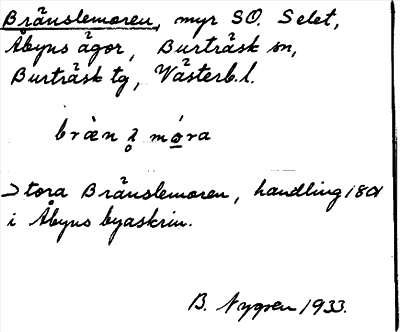 Bränslemoren, myr SO. Selet,
Åbyns ägor, Burträsk sn,
Burträsk tg, Västerb. l.
Stora Bränslemoren, handling 1801
i Åbyns byaskrin.
B. Nygren 1933.